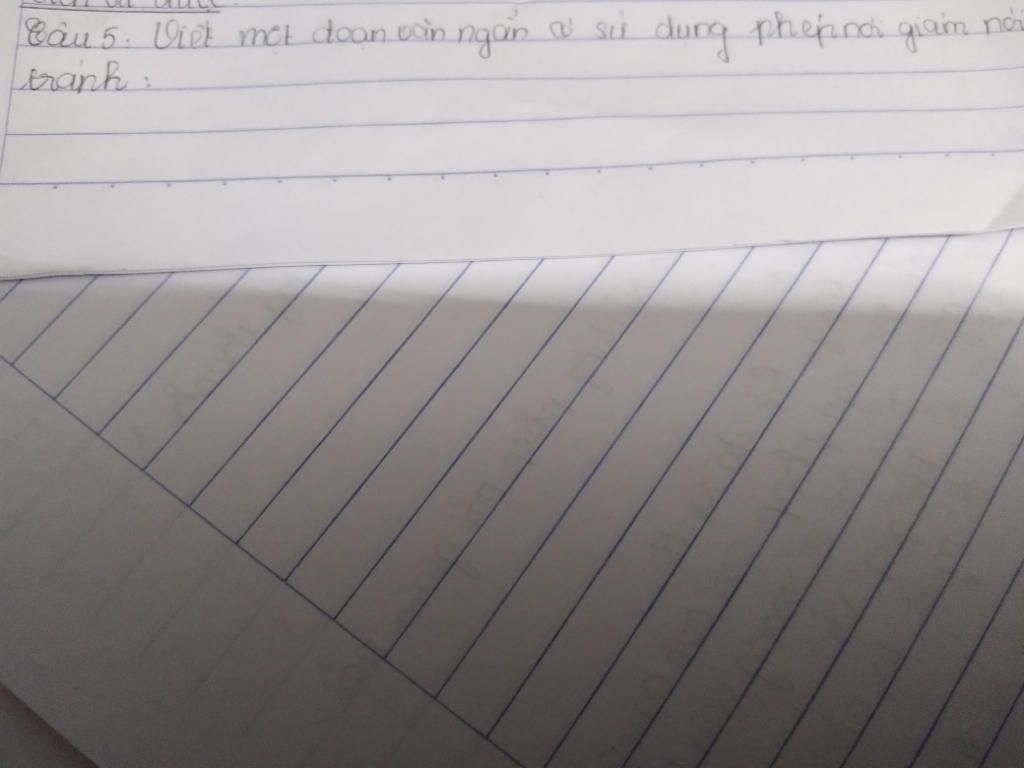 Câu 5: Viết một đoạn văn ngắn có sử dụng phép nói giảm nói
tránh: